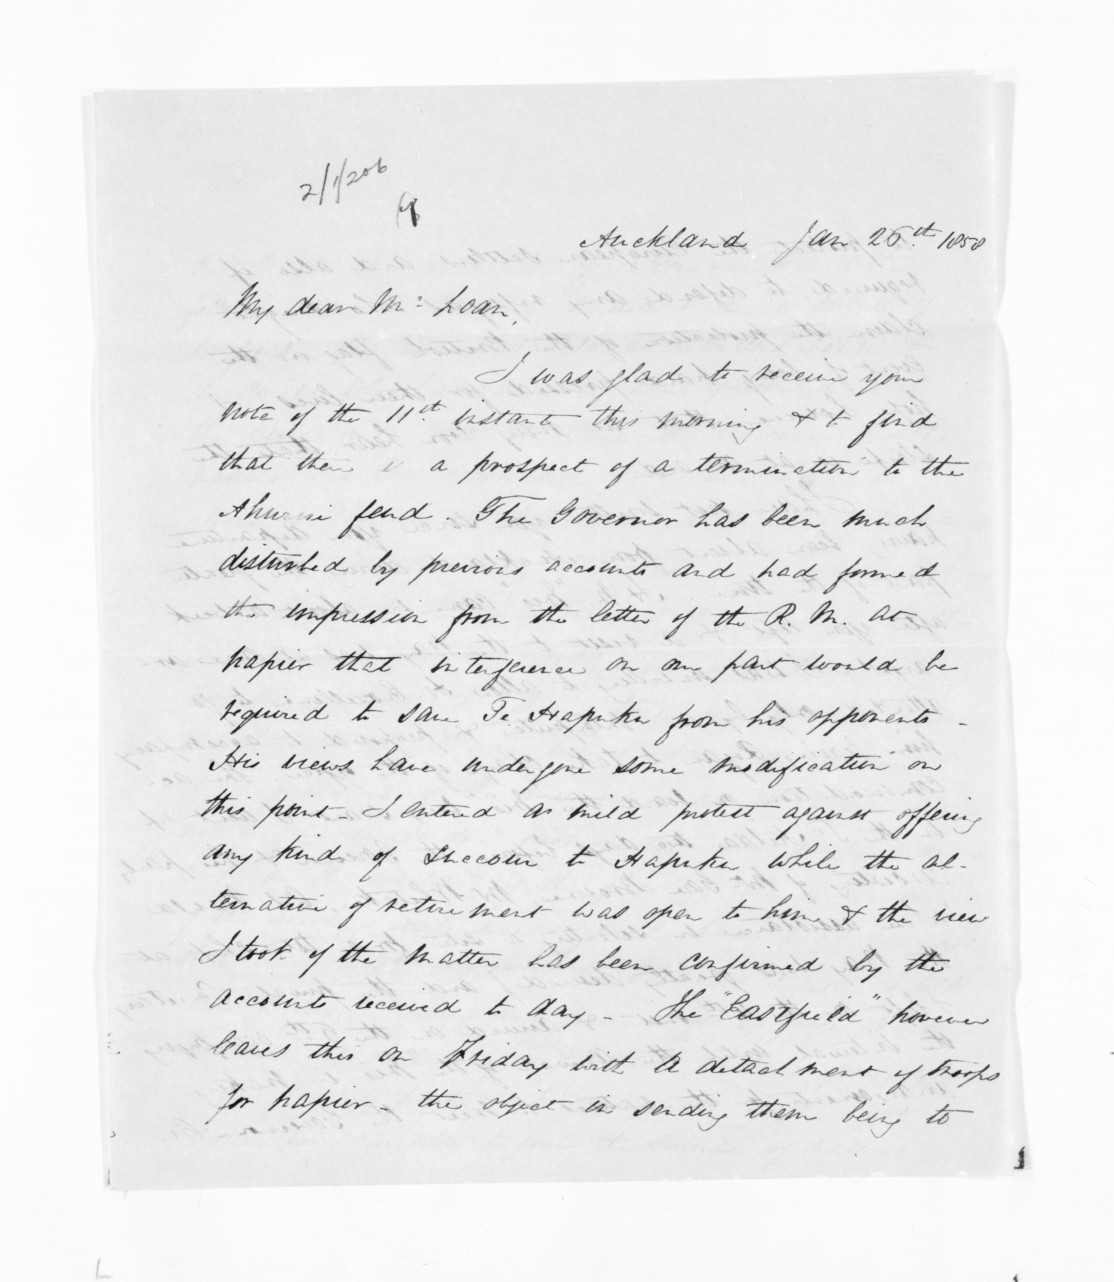 2/1/206
Auckland Jan 26th. 1858
My dear Mc. Lean,
I was glad to receive your
note of the 11th instant this morning & to find
that there is a prospect of a termination to the
Ahuriri feud. The Governor has been much
disturbed by previous accounts and had formed
the impression from the letter of the R. M. at
Napier that interference on our part would be
required to save Te Hapuku from his opponents -
His views have undergone some modification on
this point - I entered a mild protest against offering
any kind of succour to Hapuku while the al-
ternative of retirement was open to him & the view
I took of the matter has been confirmed by the
accounts received to day - The "Eastfield" however
leaves this on Friday with a detachment of troops
for Napier - the object in sending them being to